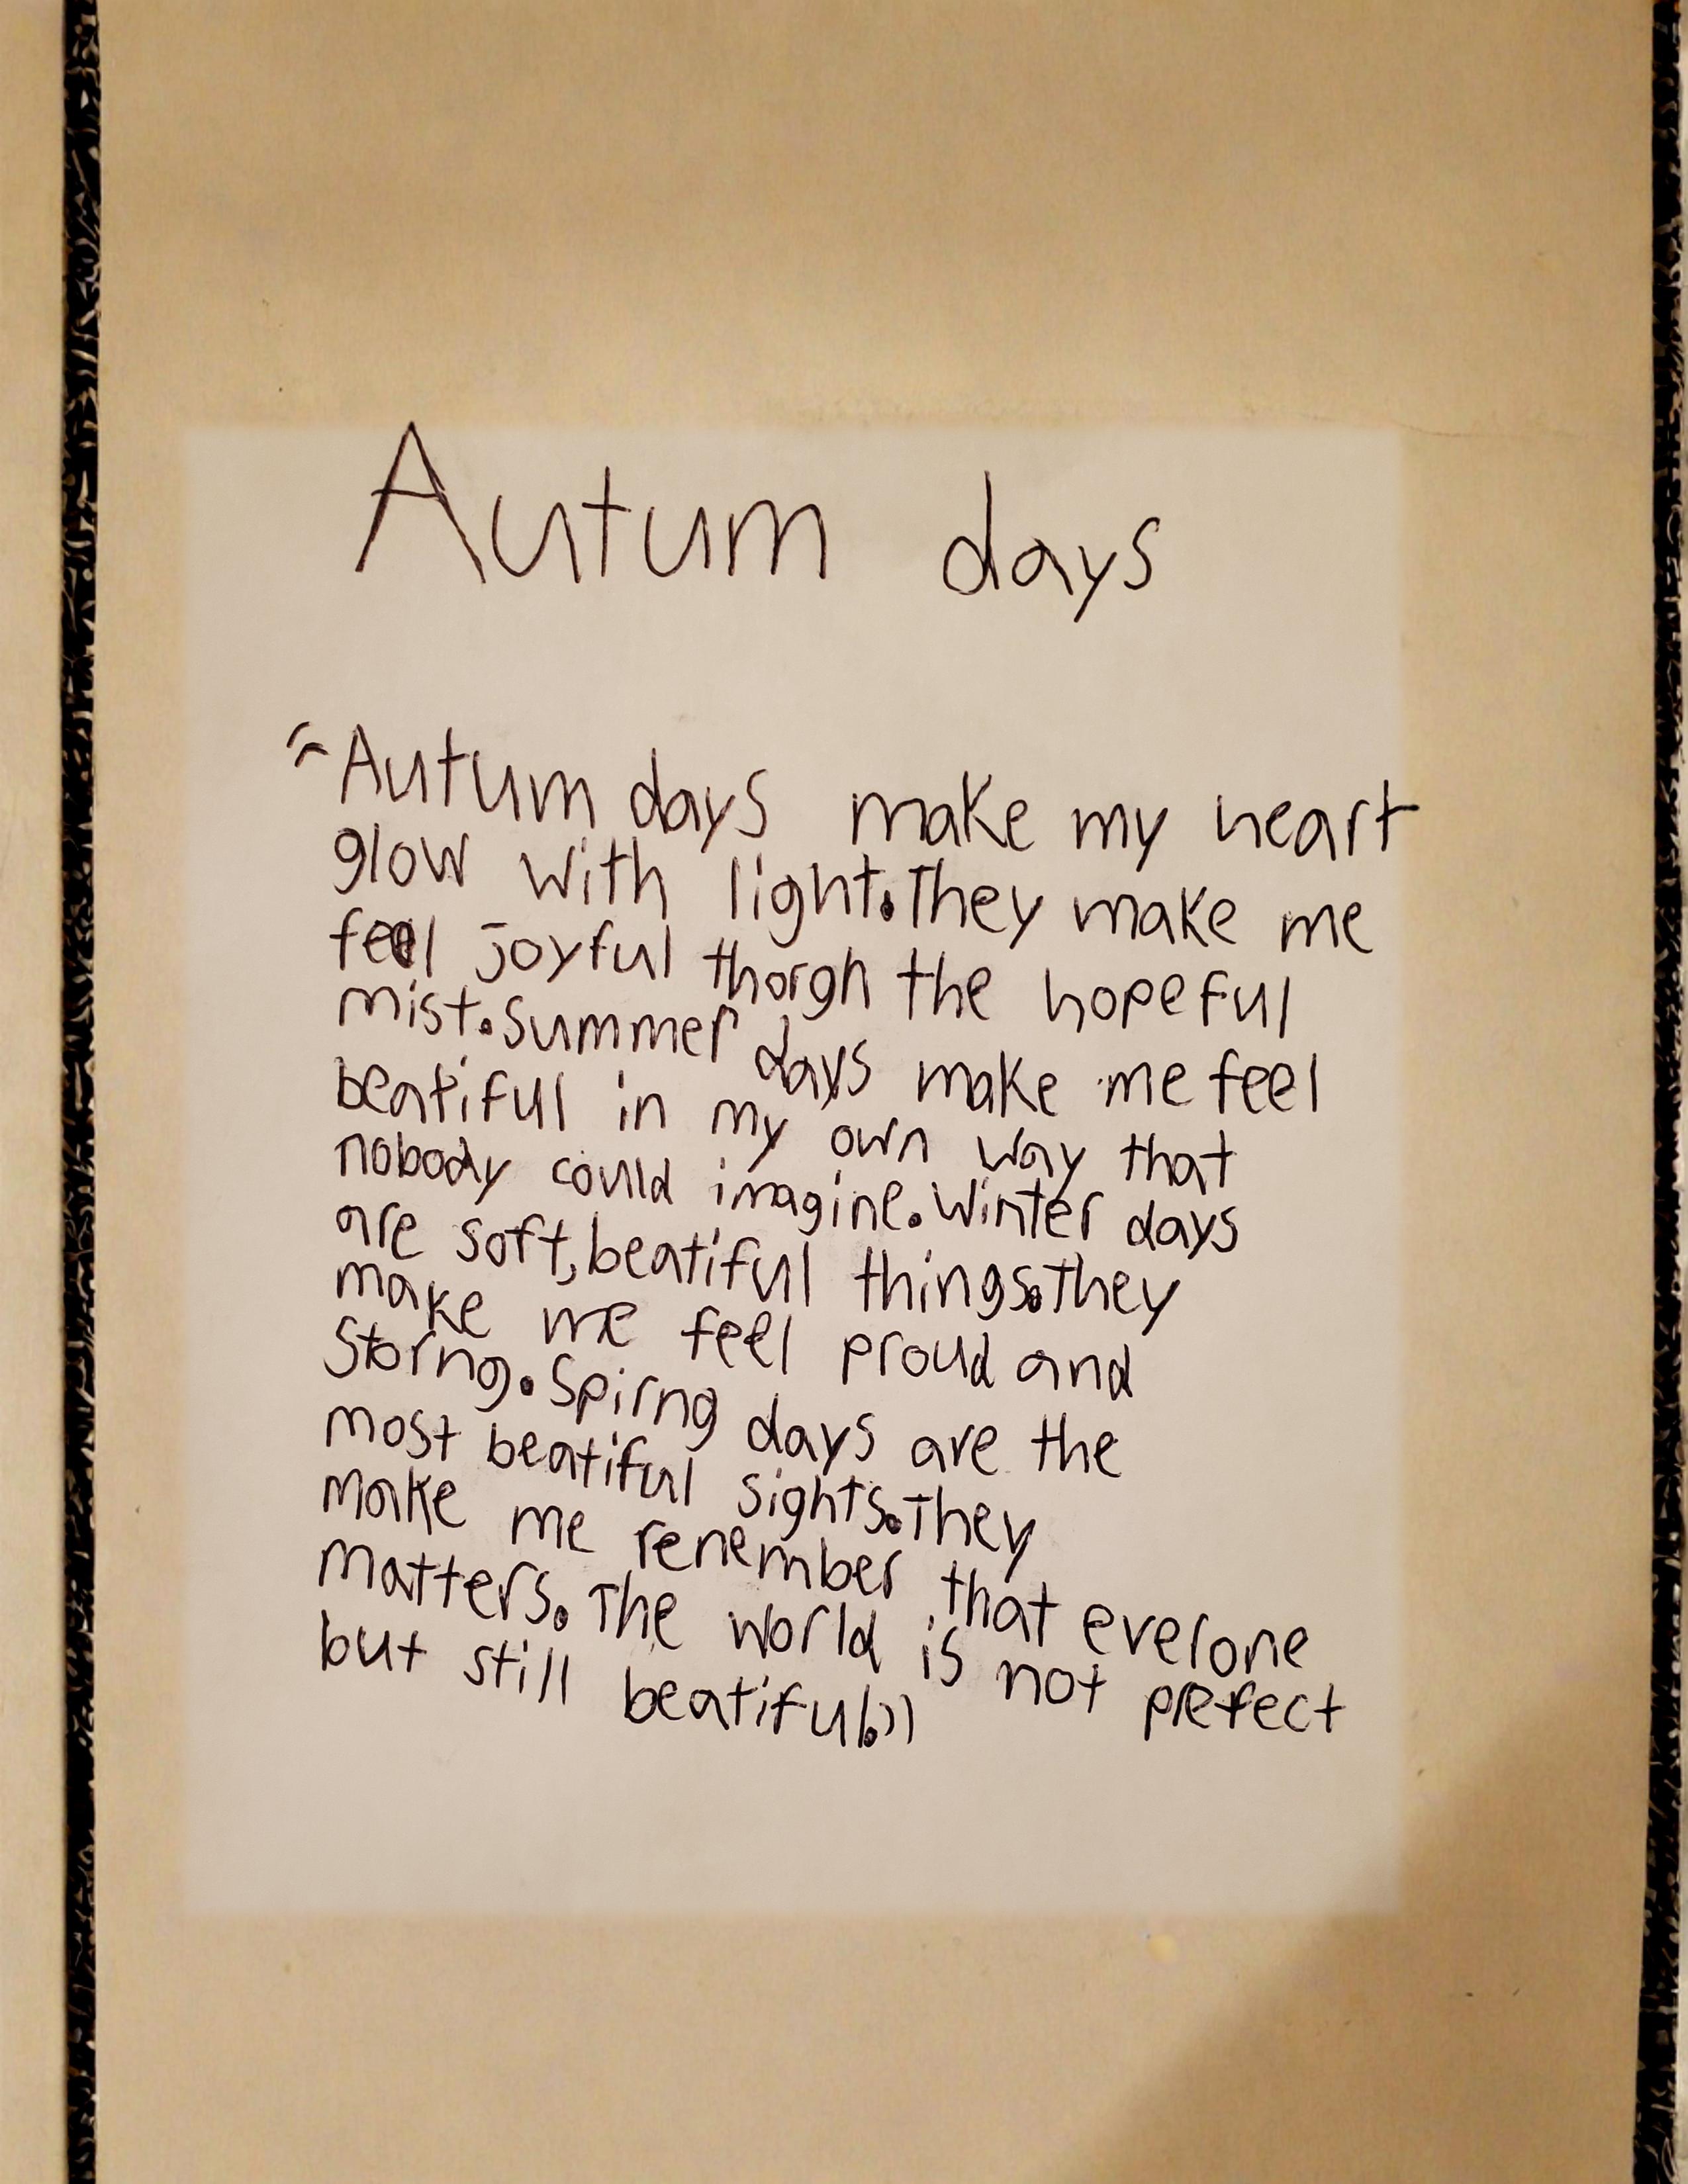 Autum days
"Autum days make my heart
glow with light.They make me
feel joyful thorgh the hopeful
mist.Summer days make me feel
beatiful in my own way that
nobody could imagine.Winter days
are soft,beatiful things.They
make me feel proud and
Storng.Spirng days are the
most beatiful sights.They
make me renember that everone
matters.The world is not prefect
but still beatiful."